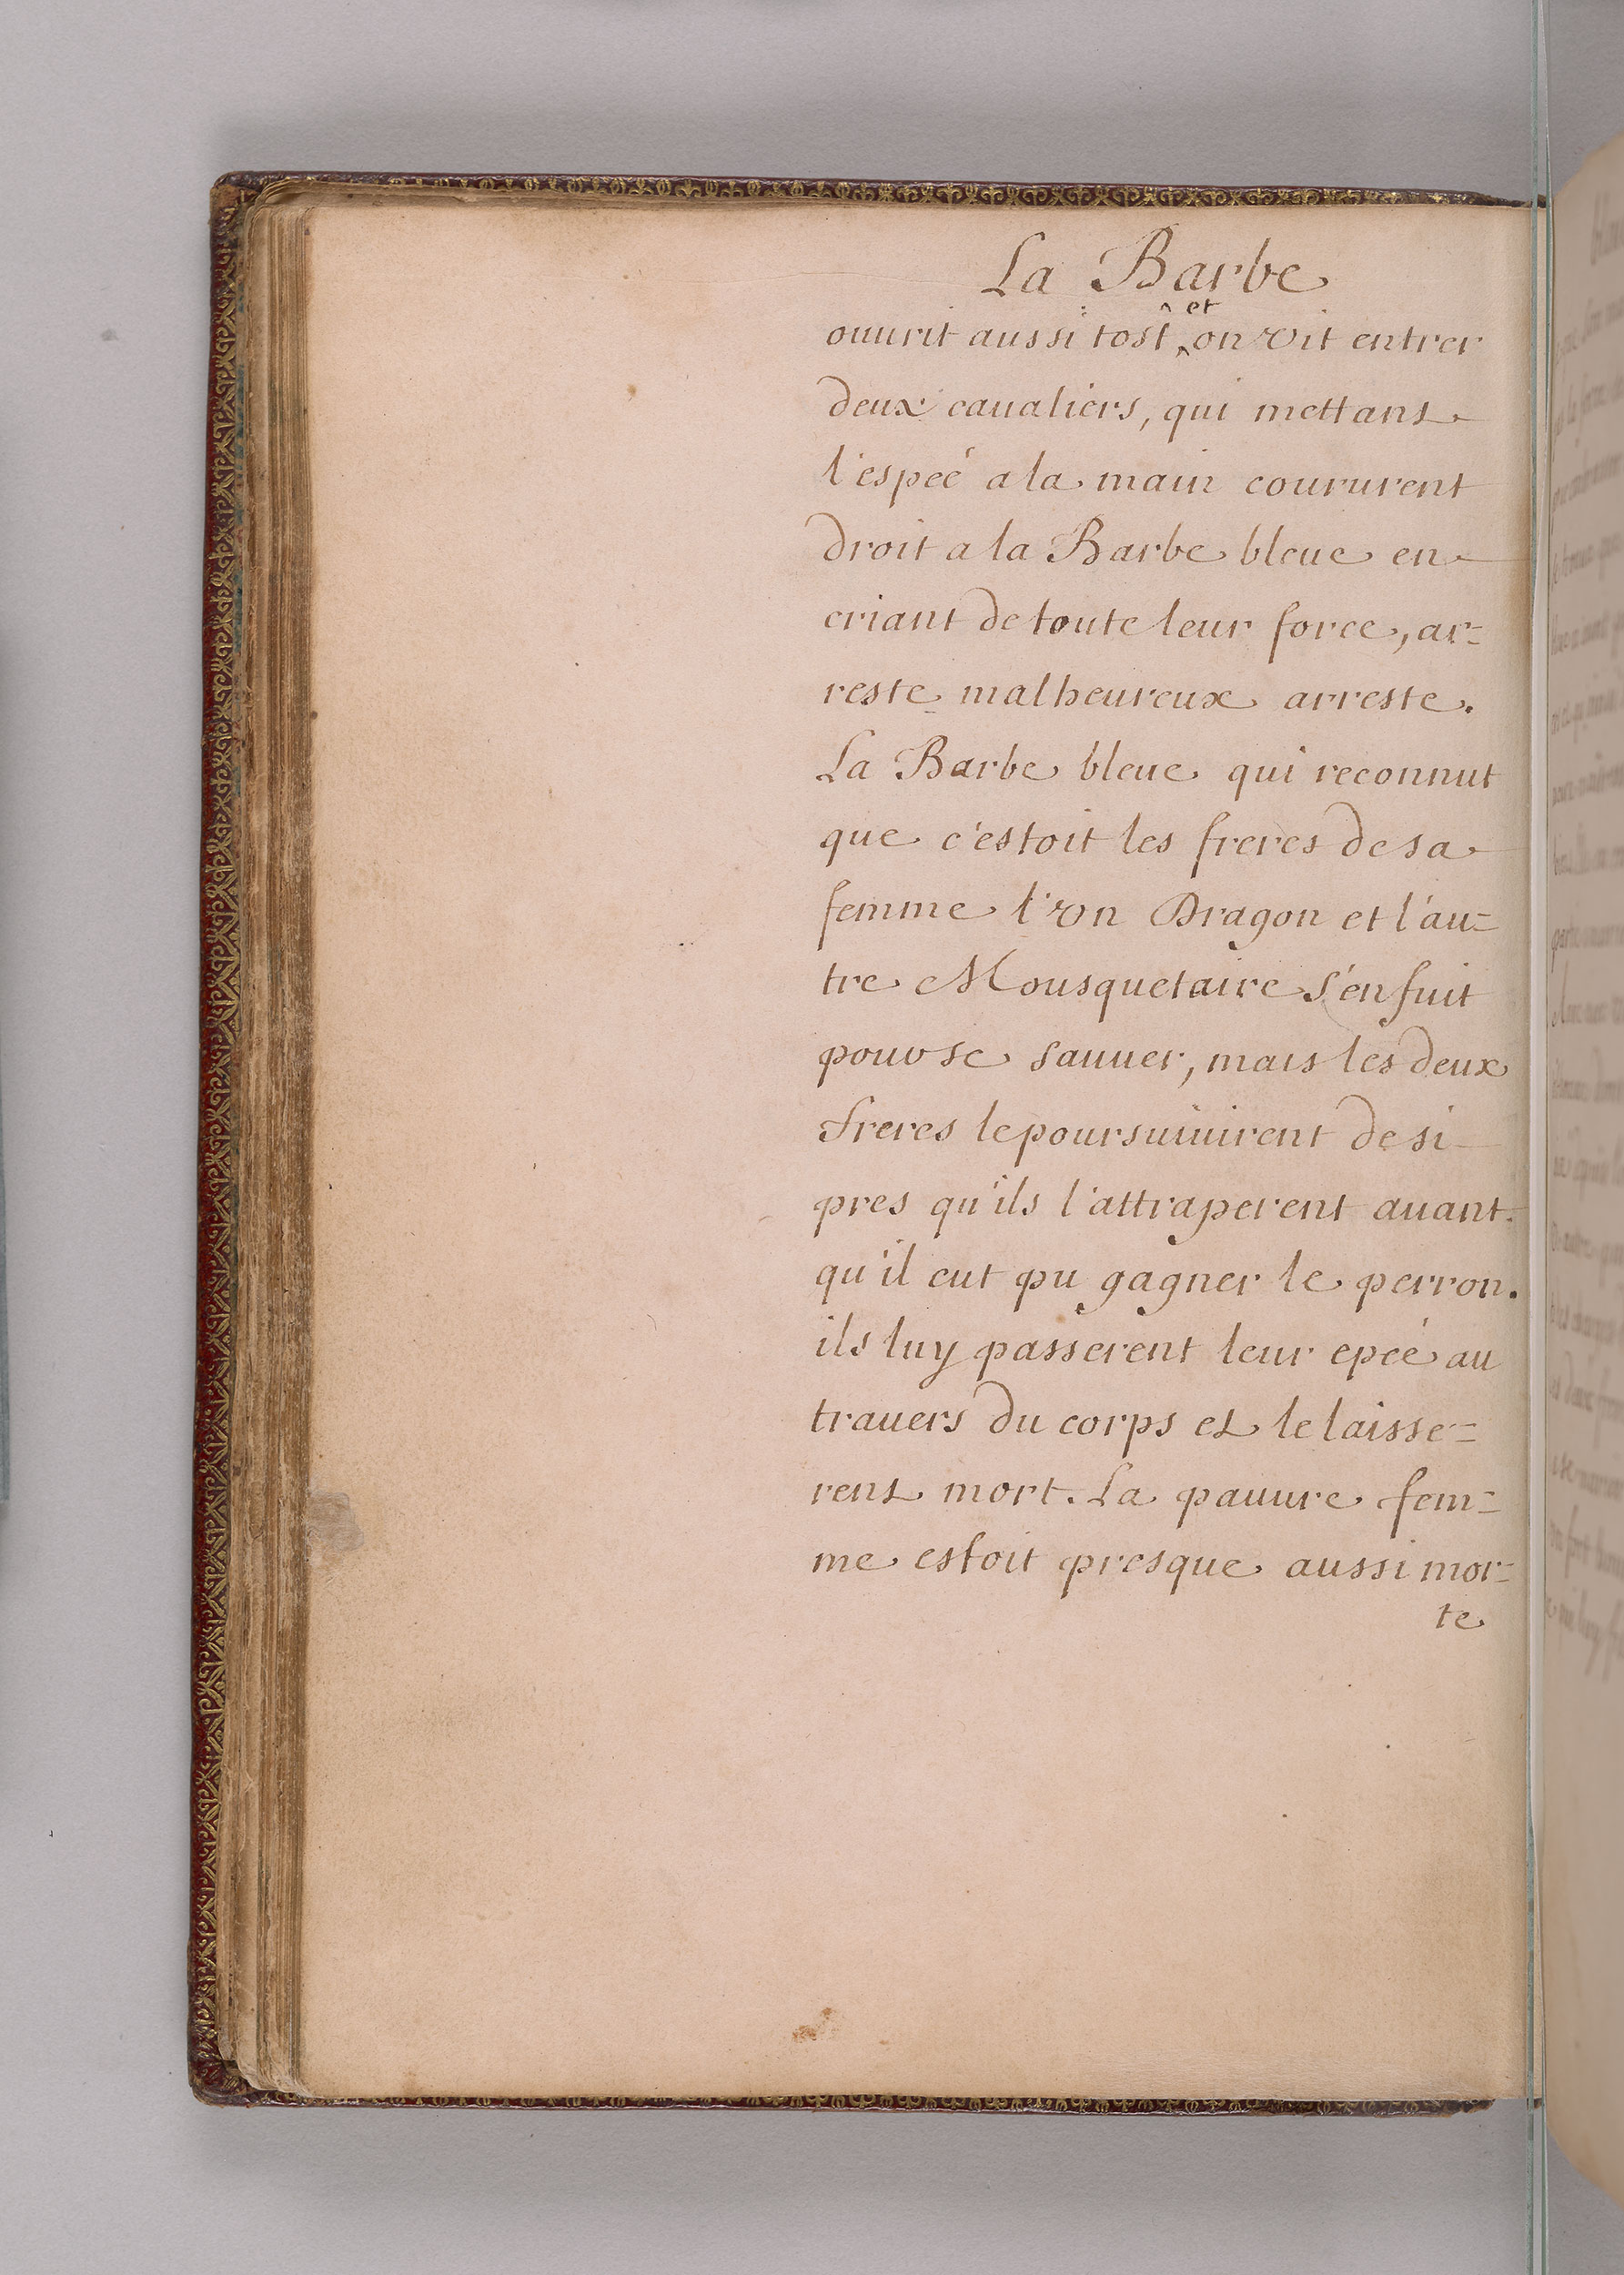 La Barbe
et
ouurit aussi tost on vit entrer
deux caualiers, qui mettans
l'espeé a la main coururent
droit a la Barbe bleue en
criant de toute leur force, ar=
reste malheureux arreste.
La Barbe bleue qui reconnut
que c'estoit les freres de sa
femme l'vn Dragon et l'au=
tre Mousquetaire s'enfuit
pour se sauuer, mais les deux
freres le poursuiuirent de si
pres qu'ils l'attraperent auant
qu'il eut pu gagner le perron.
ils luy passerent leur epeé au
trauers du corps et le laisse=
rent mort. La pauure fem=
me estoit presque aussi mor=
te